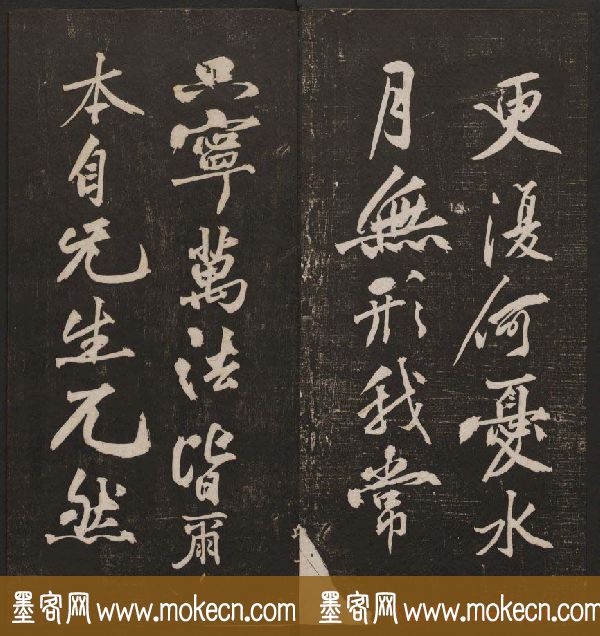 更復何憂水
月無形我常
只寧萬法皆爾
本自无生兀然
墨客网 www.mokecn.com 墨客网 www.mokecn.com